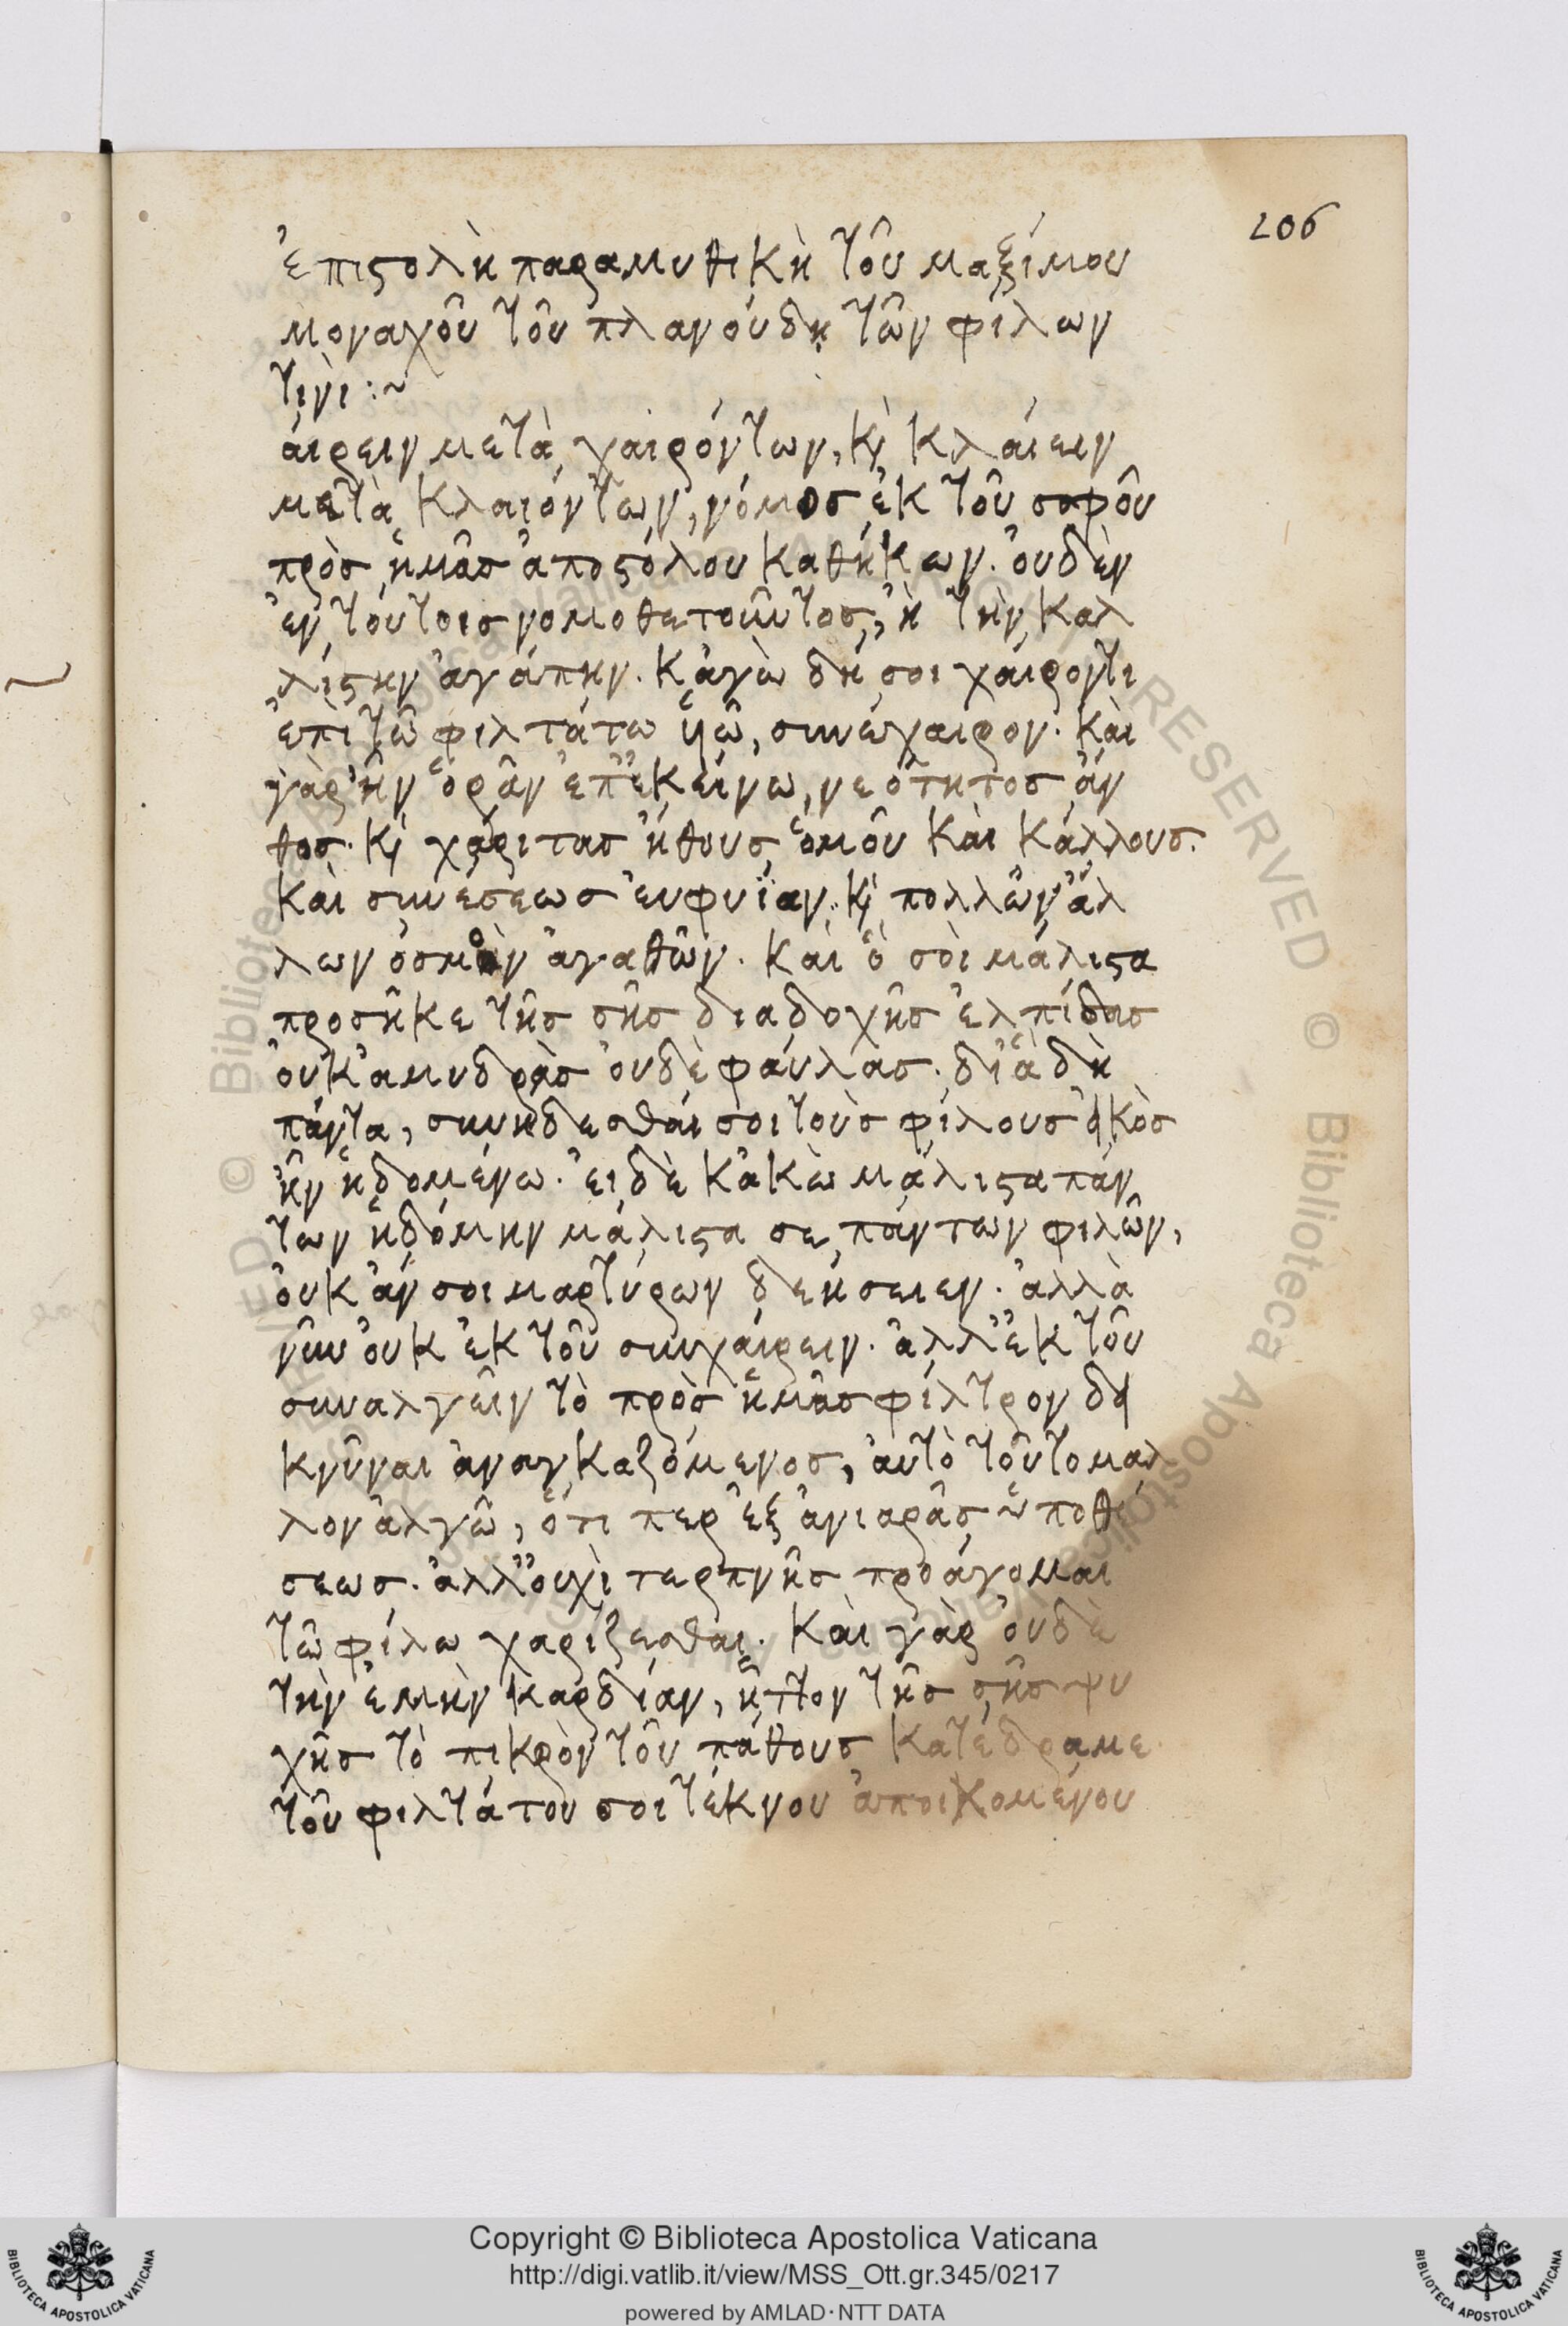 206
ἐπιστολὴ παραμυθικὴ τοῦ μαξίμου
μοναχοῦ τοῦ πλανούδη τῶν φίλων
τινὶ :~
άιρειν μετὰ χαιρόντων, κὶ κλάιειν
μετὰ κλαιόντων, νόμος ἐκ τοῦ σοφοῦ
πρὸς ἡμᾶς ἀποστόλου καθήκων. ὀυδὲν
ἐν τόυτοις νομοθετοῦντος, ἢ τὴν καλ
λίστην ἀγάπην. κἀγὼ δή σοι χάιροντι
ἐπὶ τῶ φιλτάτω ὑῶ, συνέχαιρον. καὶ
γὰρ ἦν ὁρᾶν ἐπ' ἐκείνω, νεότητος ἄν
θος. κὶ χάριτας ἤθους ὁμοῦ καὶ κάλλους.
καὶ συνέσεως ἐυφυΐαν. κὶ πολλῶν ἄλ
λων ὀσμὴν ἀγαθῶν. καὶ ὃ σοὶ μάλιστα
προσῆκε τῆς σῆς διαδοχῆς ἐλπίδας
ὀυκ ἀμυδρὰς ὀυδὲ φάυλας. δι' ἃ δὴ
πάντα, συνήδεσθάι σοι τοὺς φίλους εἰκὸς
ἦν ἡδομένω. ἐι δὲ κἀκὼ μάλιστα πάν
των ἡδόμην μάλιστα σε πάντων φιλῶν,
ὀυκ ἄν σοι μαρτύρων δεήσειεν. ἀλλὰ
νῦν ὀυκ ἐκ τοῦ συγχάιρειν. ἀλλ' ἐκ τοῦ
συναλγεῖν τὸ πρὸς ἡμᾶς φίλτρον δει
κνῦναι ἀναγκαζόμενος, ἀυτὸ τοῦτο μᾶλ
λον ἀλγῶ, ὅτι περ ἐξ ἀνιαρᾶς ὑποθέ
σεως. ἀλλ' ὀυχὶ τερπνῆς προάγομαι
τῶ φίλω χαρίζεσθαι. καὶ γὰρ ὀυδὲ
τὴν ἐμὴν καρδίαν, ἧττον τῆς σῆς ψυ
χῆς τὸ πικρὸν τοῦ πάθους κατέδραμε
τοῦ φιλτάτου σοι τέκνου ἀποιχομένου
Copyright © Biblioteca Apostolica Vaticana
http://digi.vatlib.it/view/MSS_Ott.gr.345/0217
powered by AMLAD·NTT DATA